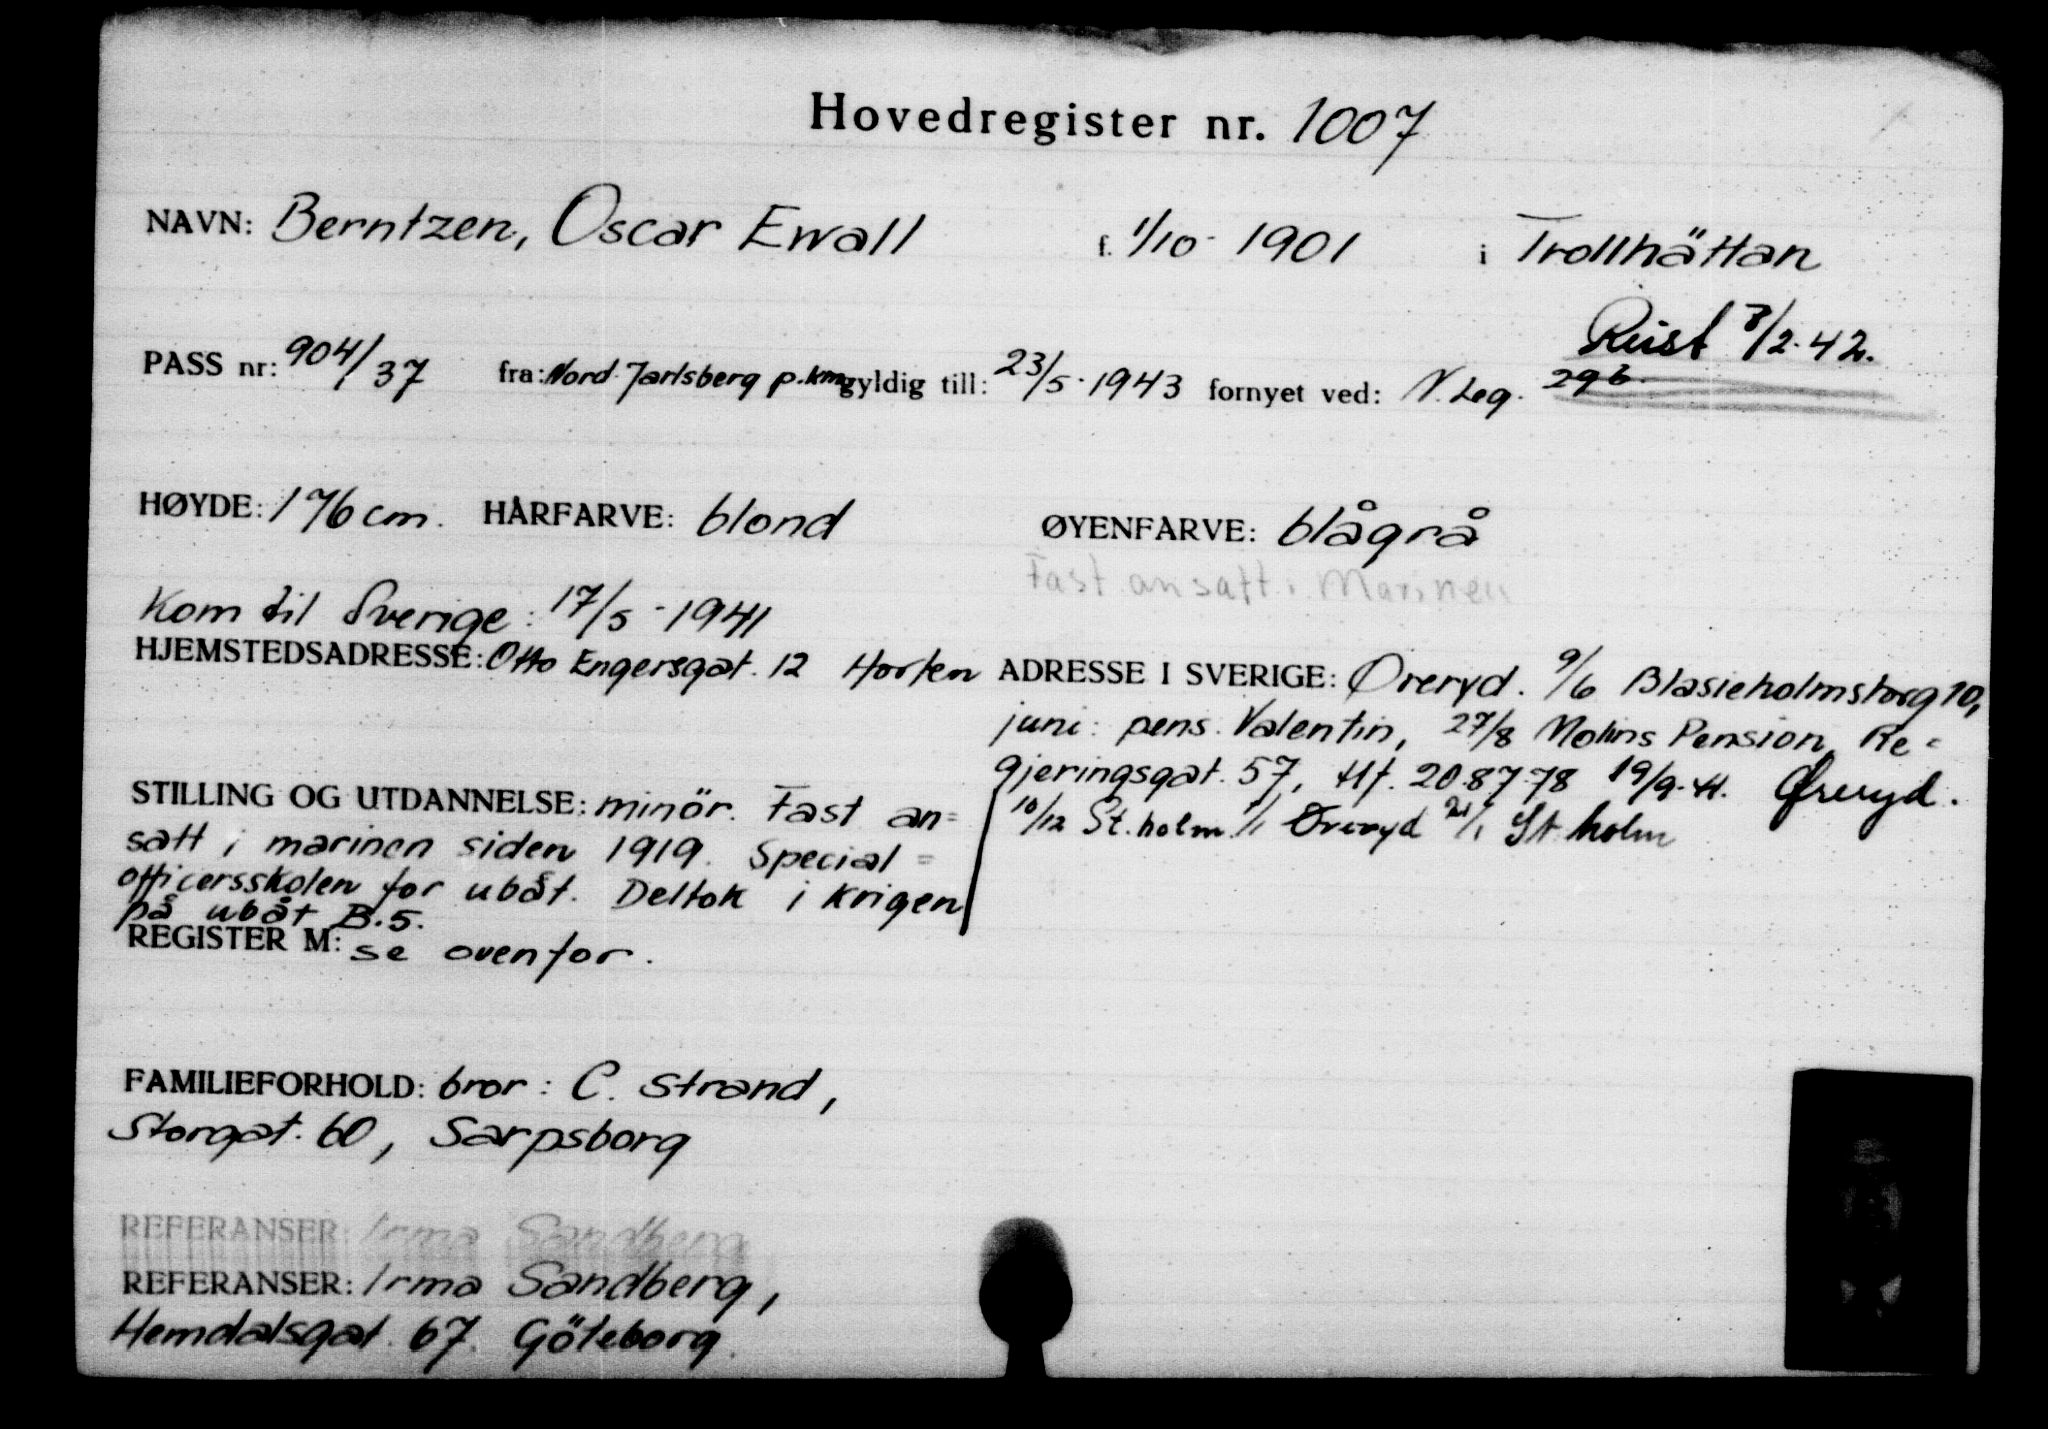 Hovedregister nr. 1007
NAVN: Berntzen, Oscar Ewall f. 1/10 - 1901 i Trollhättan
Reist 7/2-42.
PASS nr: 904/37 fra: Nord. Jarlsberg p.km gyldig till: 23/5-1943 fornyet ved: N. Leg. 296.
HØYDE: 176 cm. HÅRFARVE: blond ØYENFARVE: blågrå
Fast ansatt i Marinen
Kom til Sverige: 17/5-1941
HJEMSTEDSADRESSE: Otto Engersgat. 12 Horten
ADRESSE I SVERIGE: Øreryd. 9/6 Blasieholmstorg 10,
juni: pens. Valentin, 27/8 Molins Pension, Re=
gjeringsgat. 57, tlf. 20 87 78 19/9-41. Øreryd.
10/12 St.holm. 1/1 Øreryd 21/1 St.holm
STILLING OG UTDANNELSE: minör. Fast an=
satt i marinen siden 1919. Special=
officersskolen for ubåt. Deltok i krigen
på ubåt B.5.
REGISTER M: se ovenfor.
FAMILIEFORHOLD: bror: C. Strand,
Storgat. 60, Sarpsborg
REFERANSER: Irma Sandberg
REFERANSER: Irma Sandberg,
Hemdalsgat. 67. Göteborg.